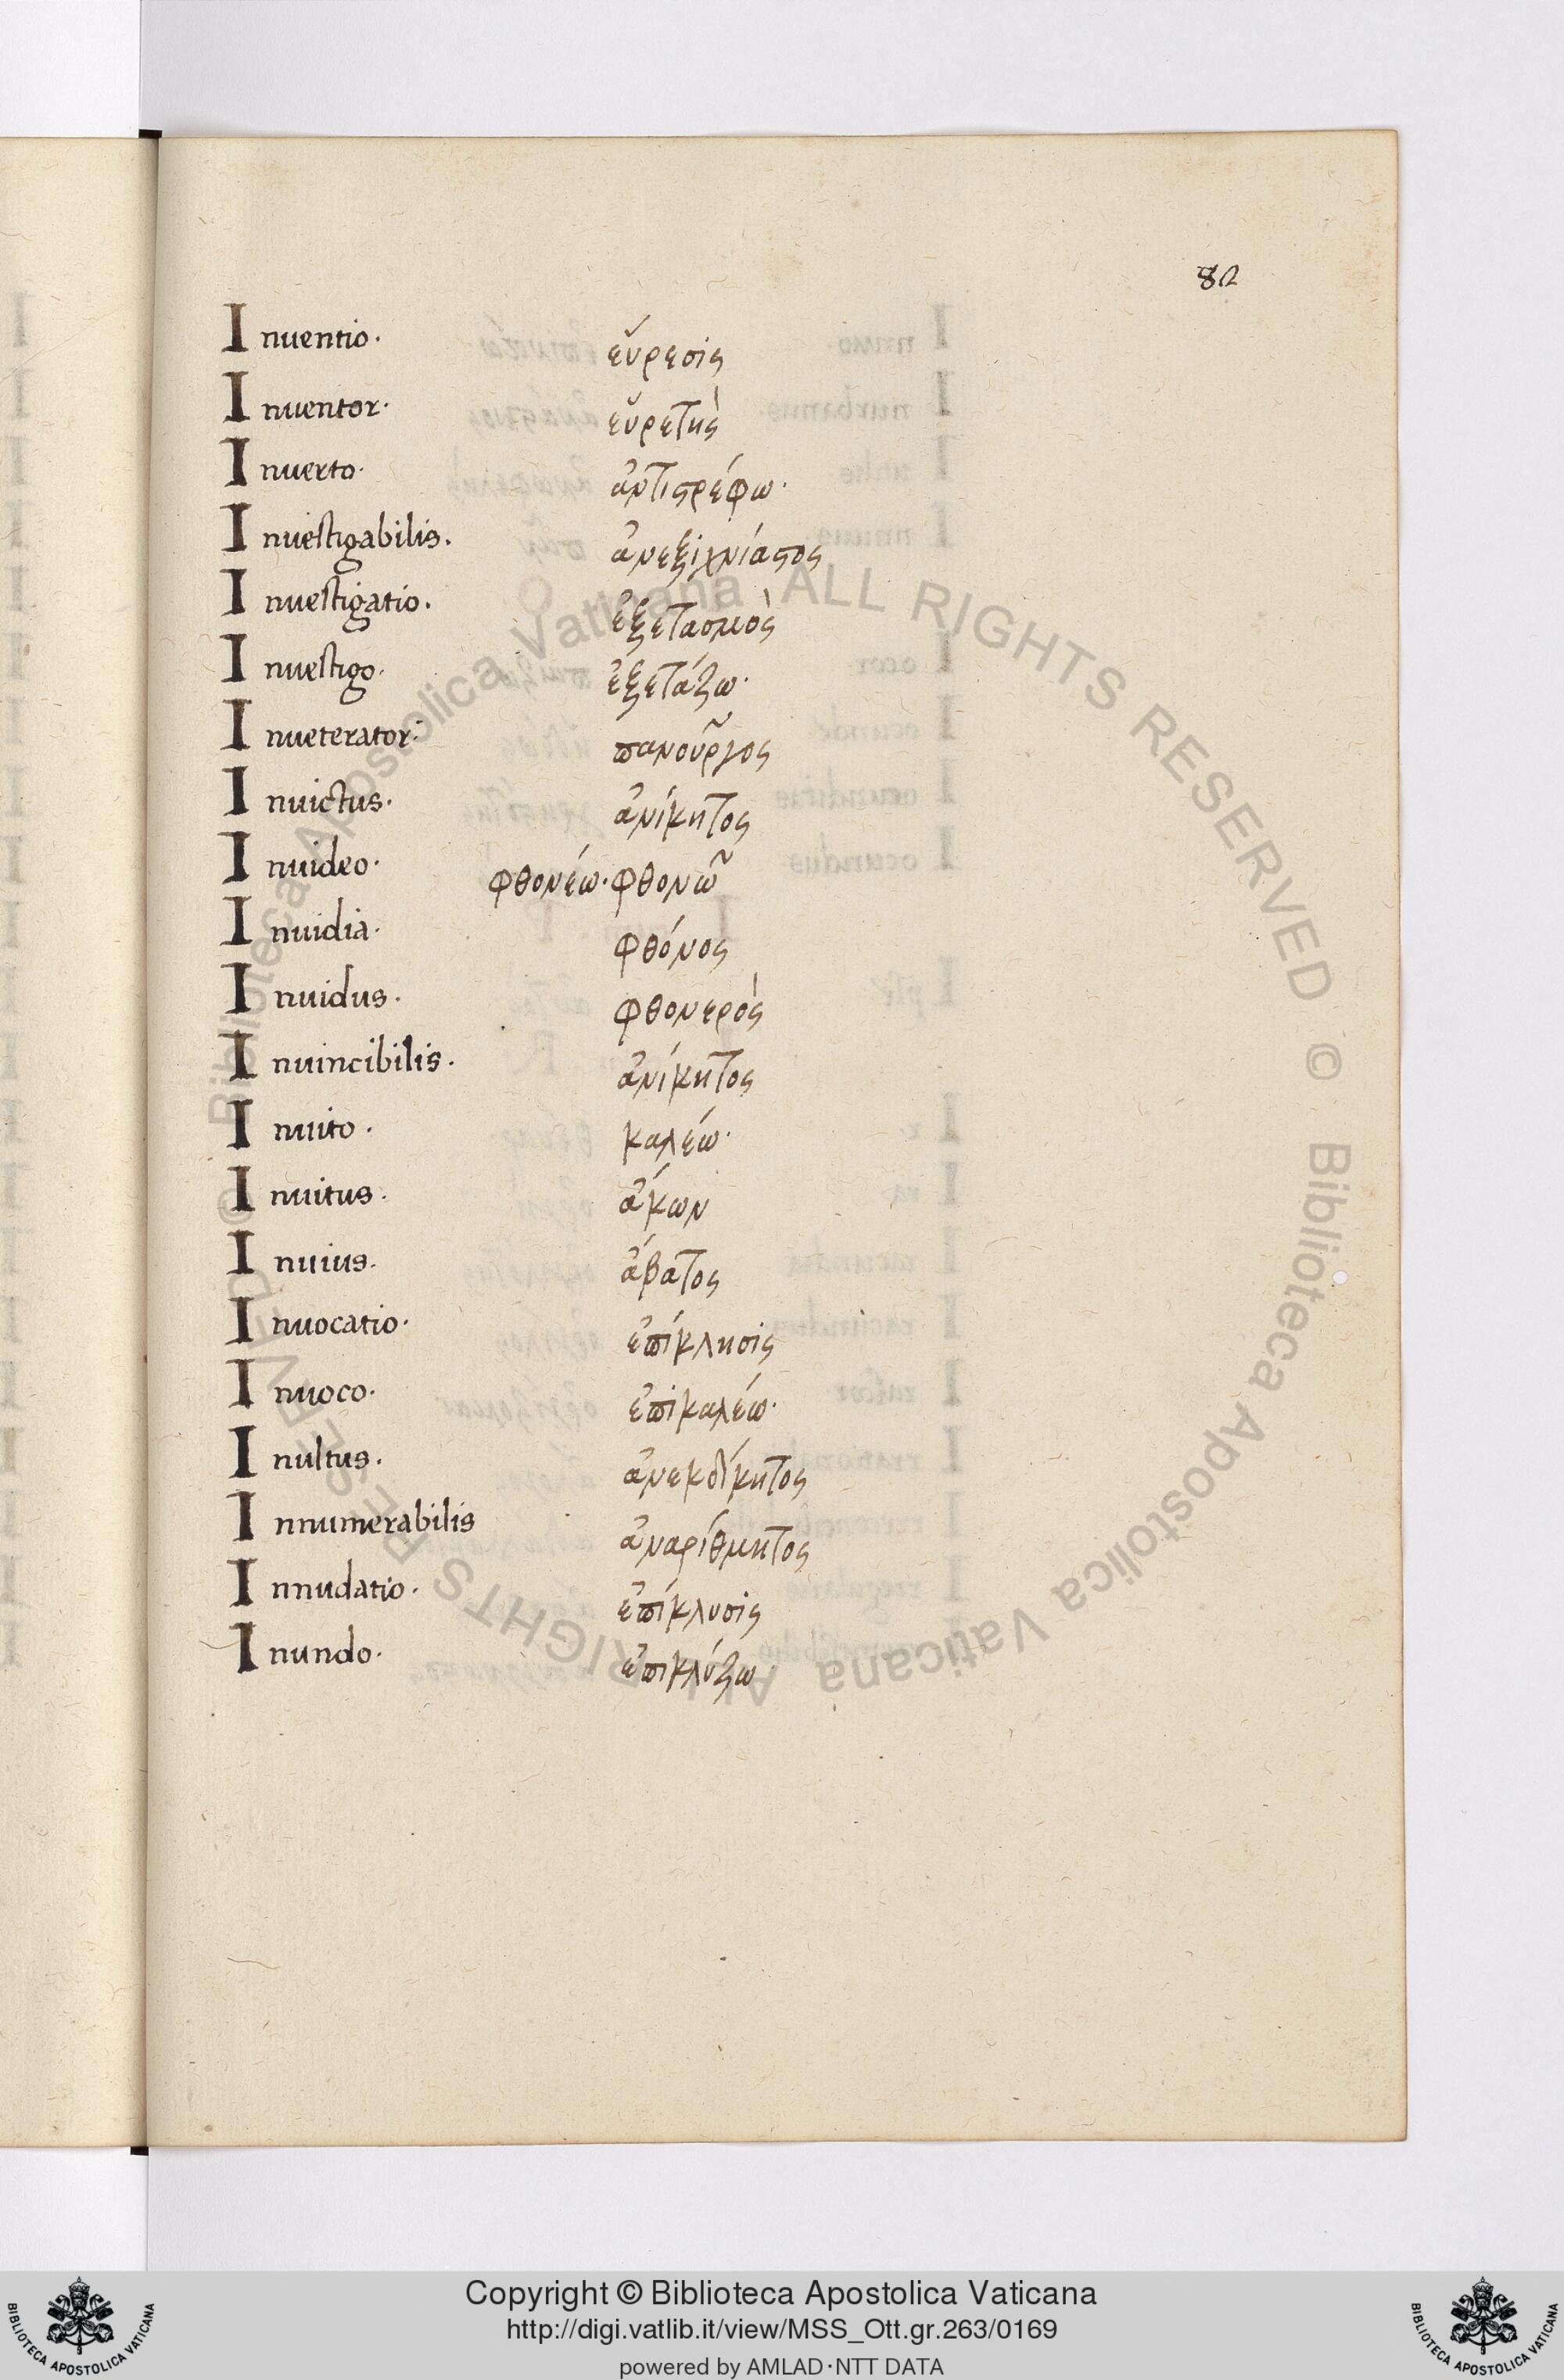 82
Inuentio· εὕρεσις
Inuentor· εὑρετὴς
Inuerto· ἀντιστρέφω·
Inuestigabilis. ἀνεξιχνίαστος
Inuestigatio. ἐξετασμὸς
Inuestigo· ἐξετάζω·
Inueterator· πανοῦργος
Inuictus· ἀνίκητος
Inuideo· φθονέω· φθονῶ
Inuidia· φθόνος
Inuidus· φθονερὸς
Inuincibilis· ἀνίκητος
Inuito· καλέω·
Inuitus· ἄκων
Inuius· ἄβατος
Inuocatio· ἐπίκλησις
Inuoco· ἐπικαλέω·
Inultus· ἀνεκδίκητος
Innumerabilis ἀναρίθμητος
Innudatio· ἐπίκλυσις
Inundo· ἐπικλύζω
© Biblioteca Apostolica Vaticana ALL RIGHTS RESERVED © Biblioteca Apostolica Vaticana ALL RIGHTS RESERVED
Copyright © Biblioteca Apostolica Vaticana
http://digi.vatlib.it/view/MSS_Ott.gr.263/0169
powered by AMLAD·NTT DATA
BIBLIOTECA APOSTOLICA VATICANA
BIBLIOTECA APOSTOLICA VATICANA